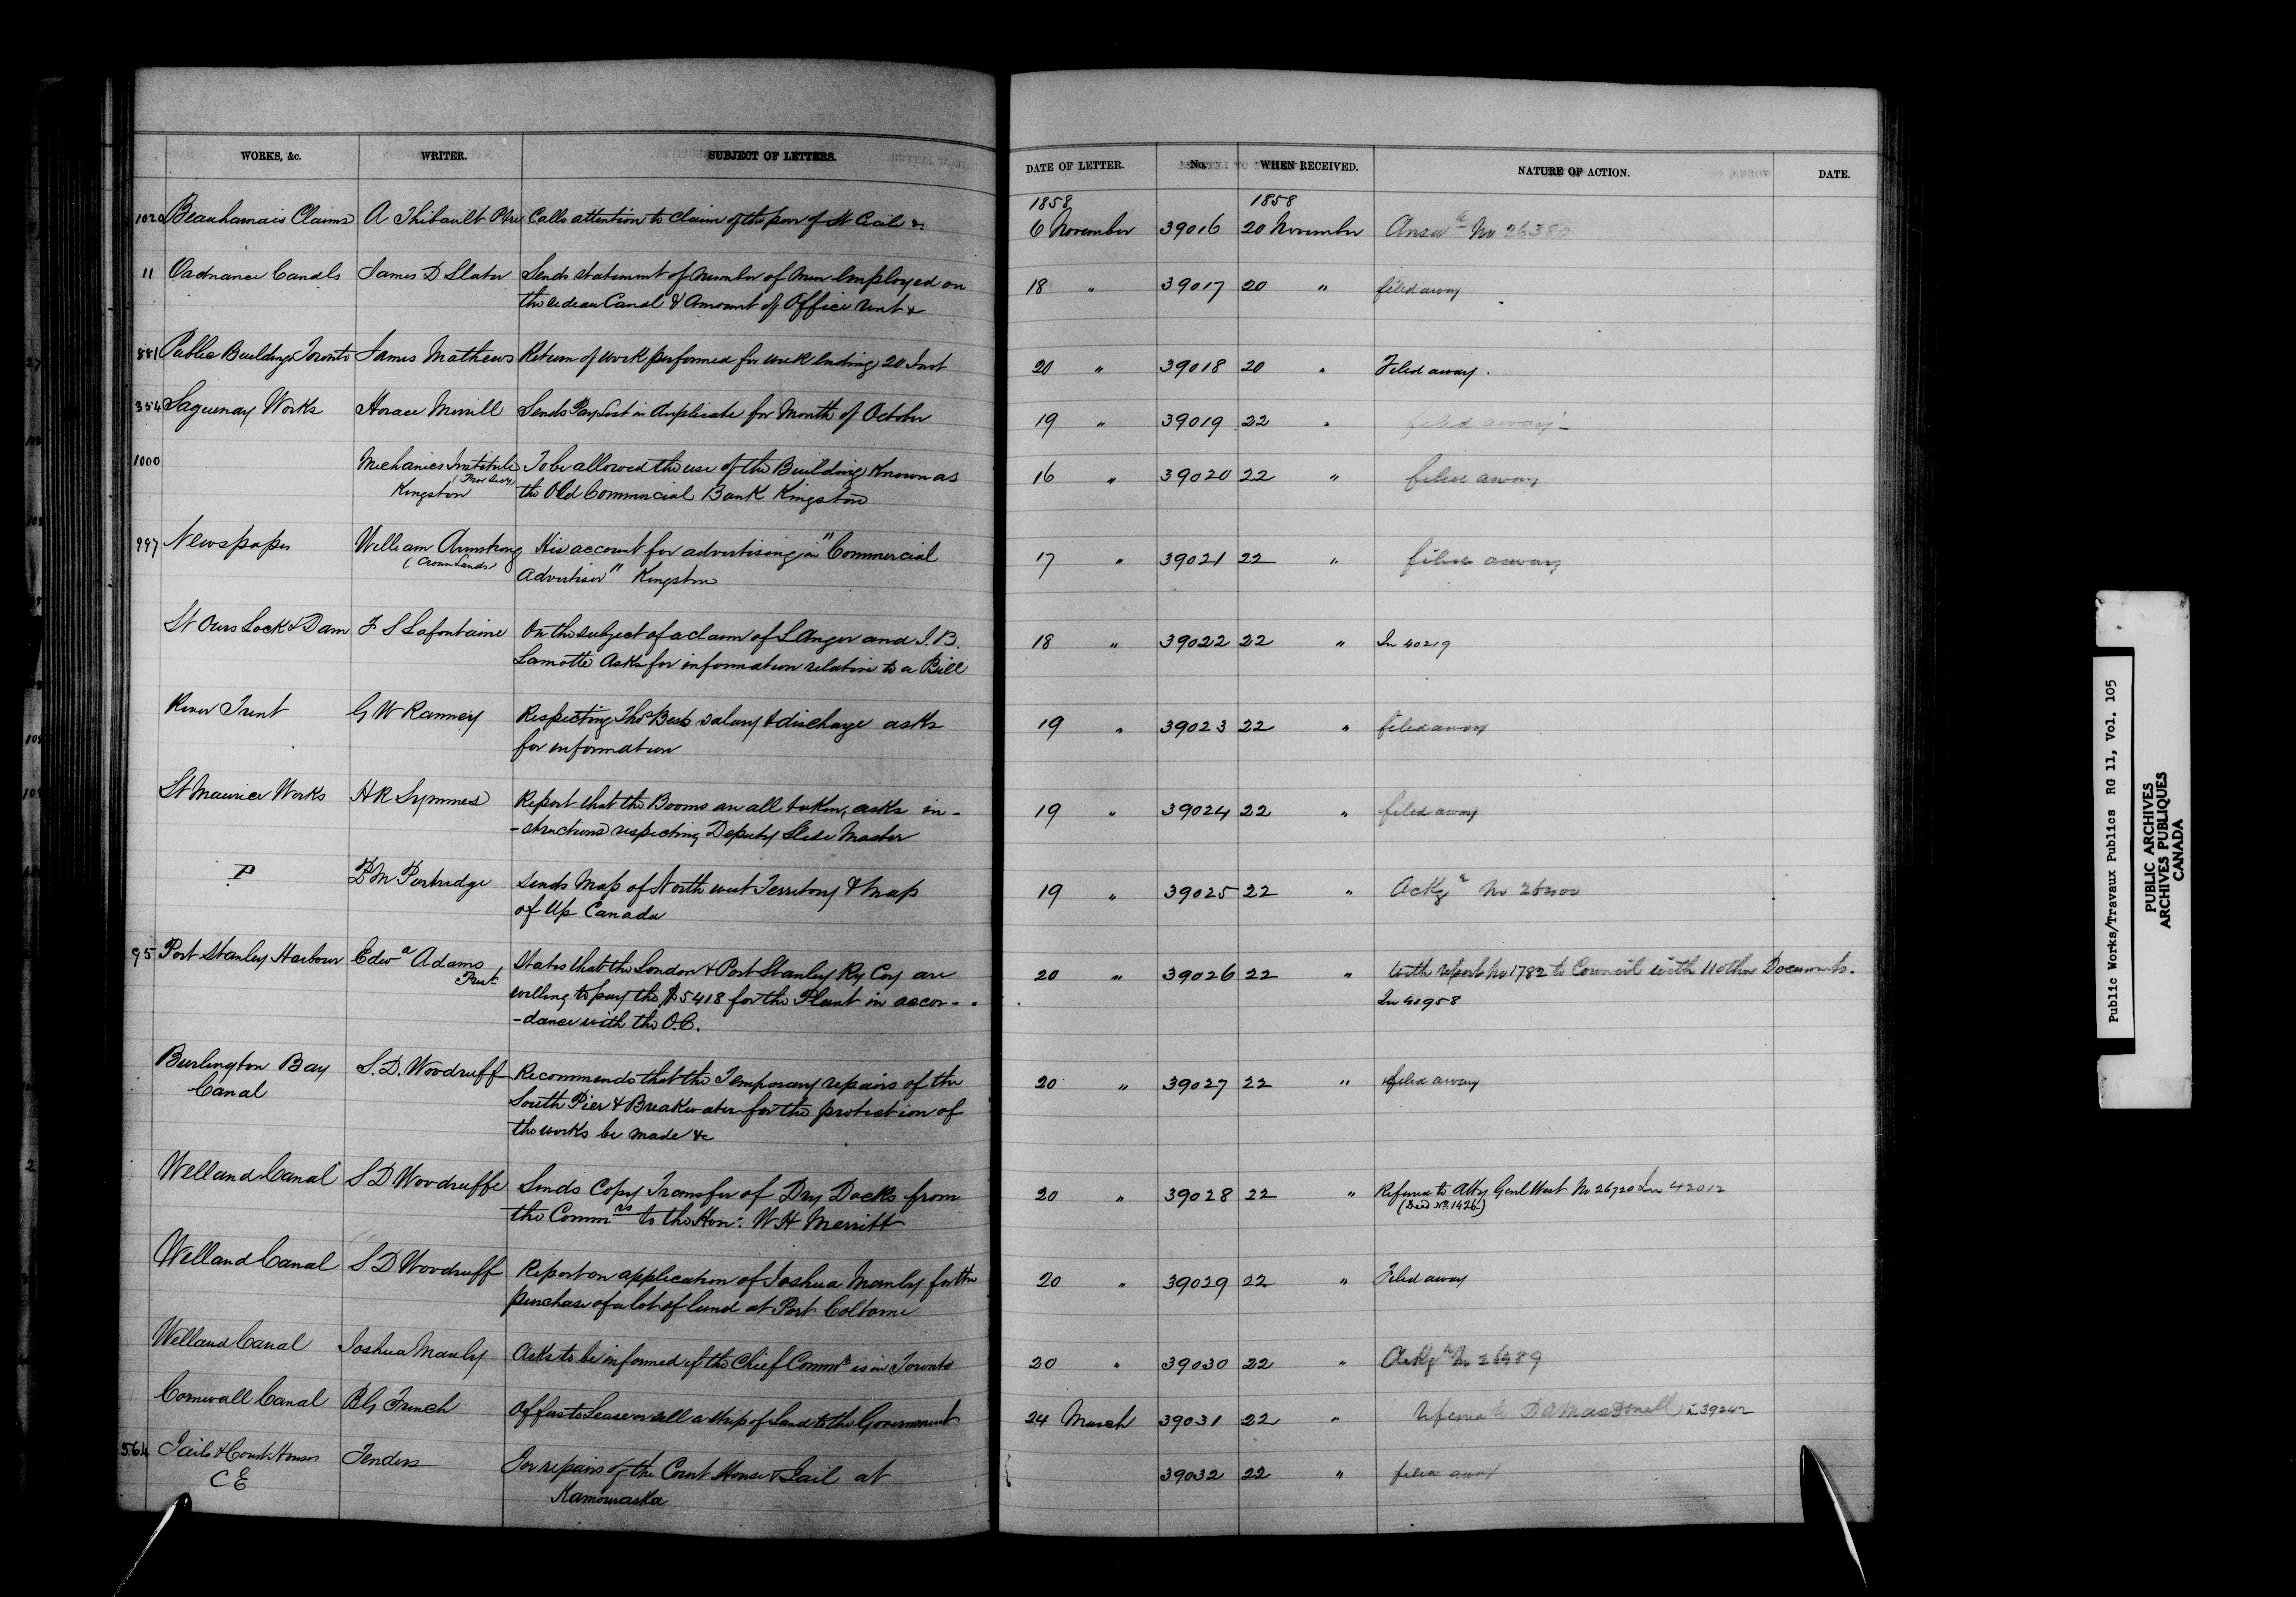 WORKS, &c. WRITER. SUBJECT OF LETTERS. DATE OF LETTER. No. WHEN RECEIVED. NATURE OF ACTION. DATE.
1858 1858
102 Beauharnais Claims A Thibault Ptre Calls attention to Claim of the poor of St Cecile &c 6 November 39016 20 November Answd No 26380
11 Ordnance Canals James D Slater Sends statement of number of men employed on 18 " 39017 20 " filed away
the Rideau Canal & Amount of Office rent &
881 Public Buildings Toronto James Mathews Return of work performed for week ending 20 Inst 20 " 39018 20 " Filed away.
354 Saguenay Works Horace Merrill Sends Pay List in duplicate for Month of October 19 " 39019 22 " filed away
1000 Mechanics Institute To be allowed the use of the Building known as 16 " 39020 22 " filed away
Kingston the Old Commercial Bank Kingston
997 Newspaper William Armstrong His account for advertising in "Commercial 17 " 39021 22 " filed away
(Crown Lands) Advertiser" Kingston
St Ours Lock & Dam F S Lafontaine On the subject of a claim of L Anger and J.B. 18 " 39022 22 " In 40219
Lamotte Asks for information relative to a Bill
River Trent G W Ranney Respecting Thos Bests salary & discharge asks 19 " 39023 22 " filed away
for information
St Maurice Works H R Symmes Report that the Booms are all taken, asks in- 19 " 39024 22 " filed away
-structions respecting Deputy Slide Master
P P M Partridge Sends Map of North west Territory & Map 19 " 39025 22 " Ackgd No
of Up Canada
95 Port Stanley Harbour Edwd Adams States that the London & Port Stanley Ry Coy are 20 " 39026 22 " With report No 1782 to Council with 11 other Documents.
Prest willing to pay the $5418 for the Plant in accor- In 41958
-dance with the O.C.
Burlington Bay S. D. Woodruff Recommends that the Temporary repairs of the 20 " 39027 22 " filed away
Canal South Pier & Breakwater for the protection of
the works be made &c
Welland Canal S D Woodruffe Sends Copy Transfer of Dry Docks from 20 " 39028 22 " Referred to Atty Genl West No 26720 In 42012
the Commrs to the Hon: W H Merritt (Deed No 1426)
Welland Canal S D Woodruff Report on application of Joshua Manly for the 20 " 39029 22 " Filed away
purchase of a lot of land at Port Colborne
Welland Canal Joshua Manly Asks to be informed if the Chief Commr is in Toronto 20 " 39030 22 " Ackgd No 26489
Cornwall Canal B G French Offers to Lease or sell a strip of Land to the Government 24 March 39031 22 " Referred to D A MacDonell L 39242
564 Jails & Court Houses Tenders For repairs of the Court House & Jail at 39032 22 " filed away
C E Kamouraska
Public Works/Travaux Publics RG 11, Vol. 105
PUBLIC ARCHIVES
ARCHIVES PUBLIQUES
CANADA